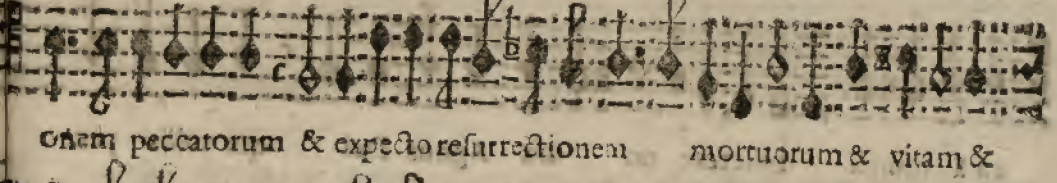 onem peccatorum & expecto resurrectionem mortuorum & vitam &